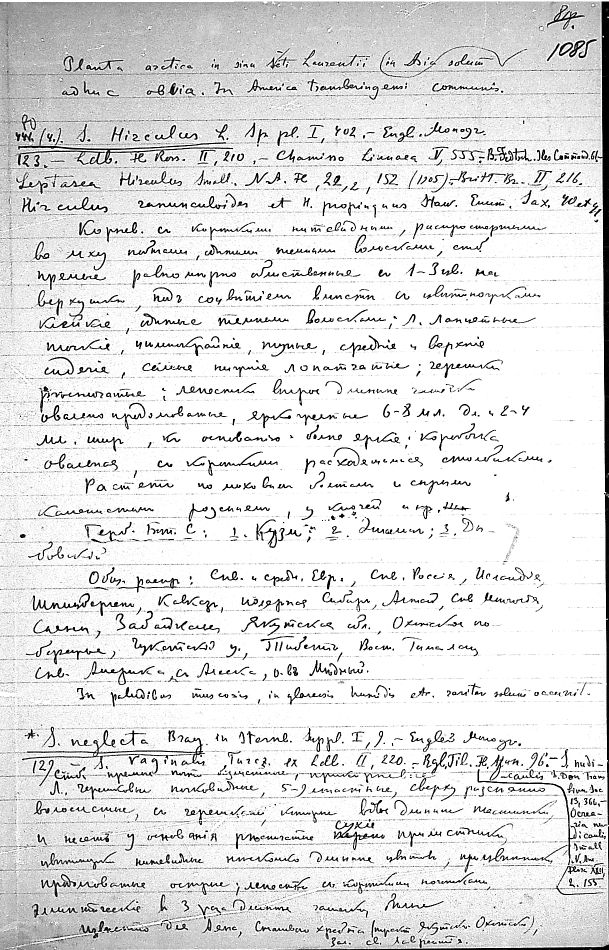 1085
Planta arctica in sinu Scti Laurentii (in Asia solum
adhuc obvia. In America transberingensi communis.
(4.) S. Hirculus L. Sp. pl. I, 402. – Engl. Monogr.
123. – Ldb. Fl. Ross. II, 210. – Chamisso Linnaea V, 555. –
Leptasea Hirculus Small. N. A. Fl. 22, 2, 152 (1905). – Britt. Br. II, 216.
Hirculus ranunculoides et H. propinquus Haw. Enum. Sax. 40 et 41.
Корнев. с короткими нитевидными, распростертыми
во мху побегами, одетыми темными волосками, стеб.
прямые равномерно облиственные с 1–3 цв. на
верхушке, под соцветием вместе с цветоножками
клейкие, одетые темными волосками; Л. ланцетные
плоские, цельнокрайние, тупые, средние и верхние
сидячие, самые нижние лопатчатые; черешки
реснитчатые; лепестки вдвое длиннее чашечки
овально продолговатые, ярко желтые 6–8 мл. дл. и 2–4
мл. шир., к основанию более яркие; коробочка
овальная, с короткими расходящимися столбиками.
Растет по моховым болотам и сырым
каменистым россыпям, у ключей и пр.
Герб. Бот. С.: 1. Кузм; 2. 3. Ды-
бовский
Общ. распр.: Сев. и средн. Евр., Сев. Россия, Исландия,
Шпицберген, Кавказ, полярная Сибирь, Алтай, Сев. Монголия,
Саяны, Забайкалье, Якутская обл., Охотское по-
бережье, Чукотский п., Тибет, Вост. Гималаи
Сев. Америка, с Аляска, о-въ Медный.
In paludibus muscosis, in glareosis humidis etc. raritor solum occurrit.
* S. neglecta Bray in Sternb. Suppl. I, 9. – Engler Monogr.
129. S. vaginalis Turcz. ex Ldb. II, 220. – Rgl. Til. Fl. Ajan. 96. – S. nudi-
caulis D. Don Trans
Linn Soc
13, 366, –
Ocrea-
ria nu-
dicaulis
Small
N. Am.
Flora XXII,
2. 155
Стеб. прямые почти безлистные,
Л. черешков. почковидные, 5–9 лопастные, сверху рассеянно
волосистые, с черешком, который вдвое длиннее пластинки,
и несет у основания реснитчатые сухие прилистники
цветоножки нитевидные несколько длиннее цветов, прицветники
продолговатые острые; лепестки с коротким ноготком
эллиптические в 3 раза длиннее чашечки белые
Известно для Аяна, Станового хребта (тракт Якутско-Охотский),
Зал. св. Лаврентия.